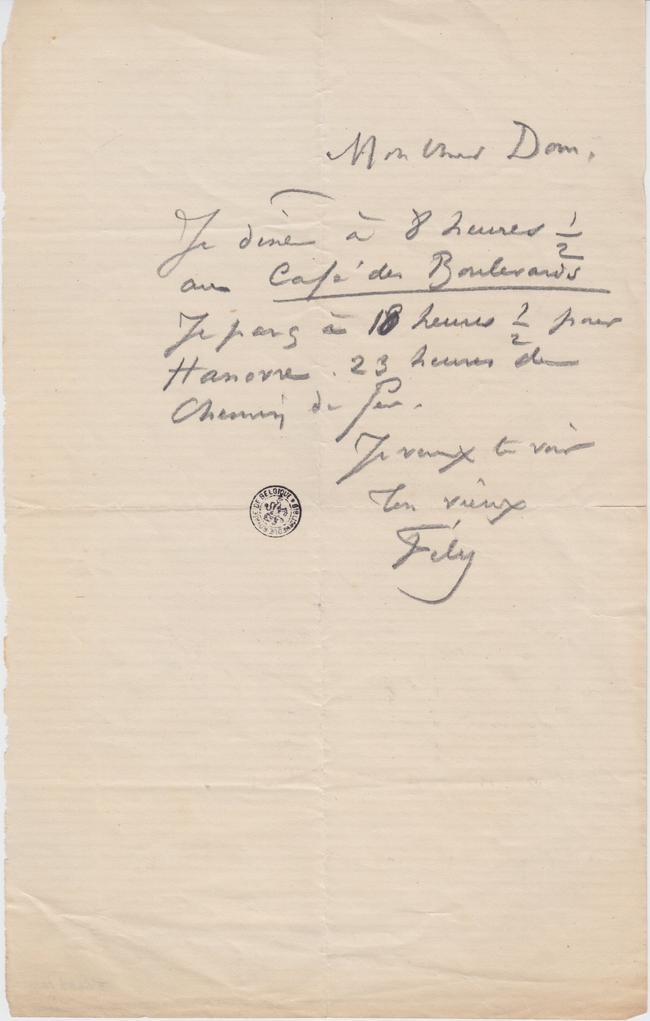 Mon cher Dom,
Je dine à 8 heures 1/2
au Café des Boulevards
Je pars à 10 heures 1/2 pour
Hanovre. 23 heures de
Chemin de fer.
Je veux te voir
Ton vieux
Fély